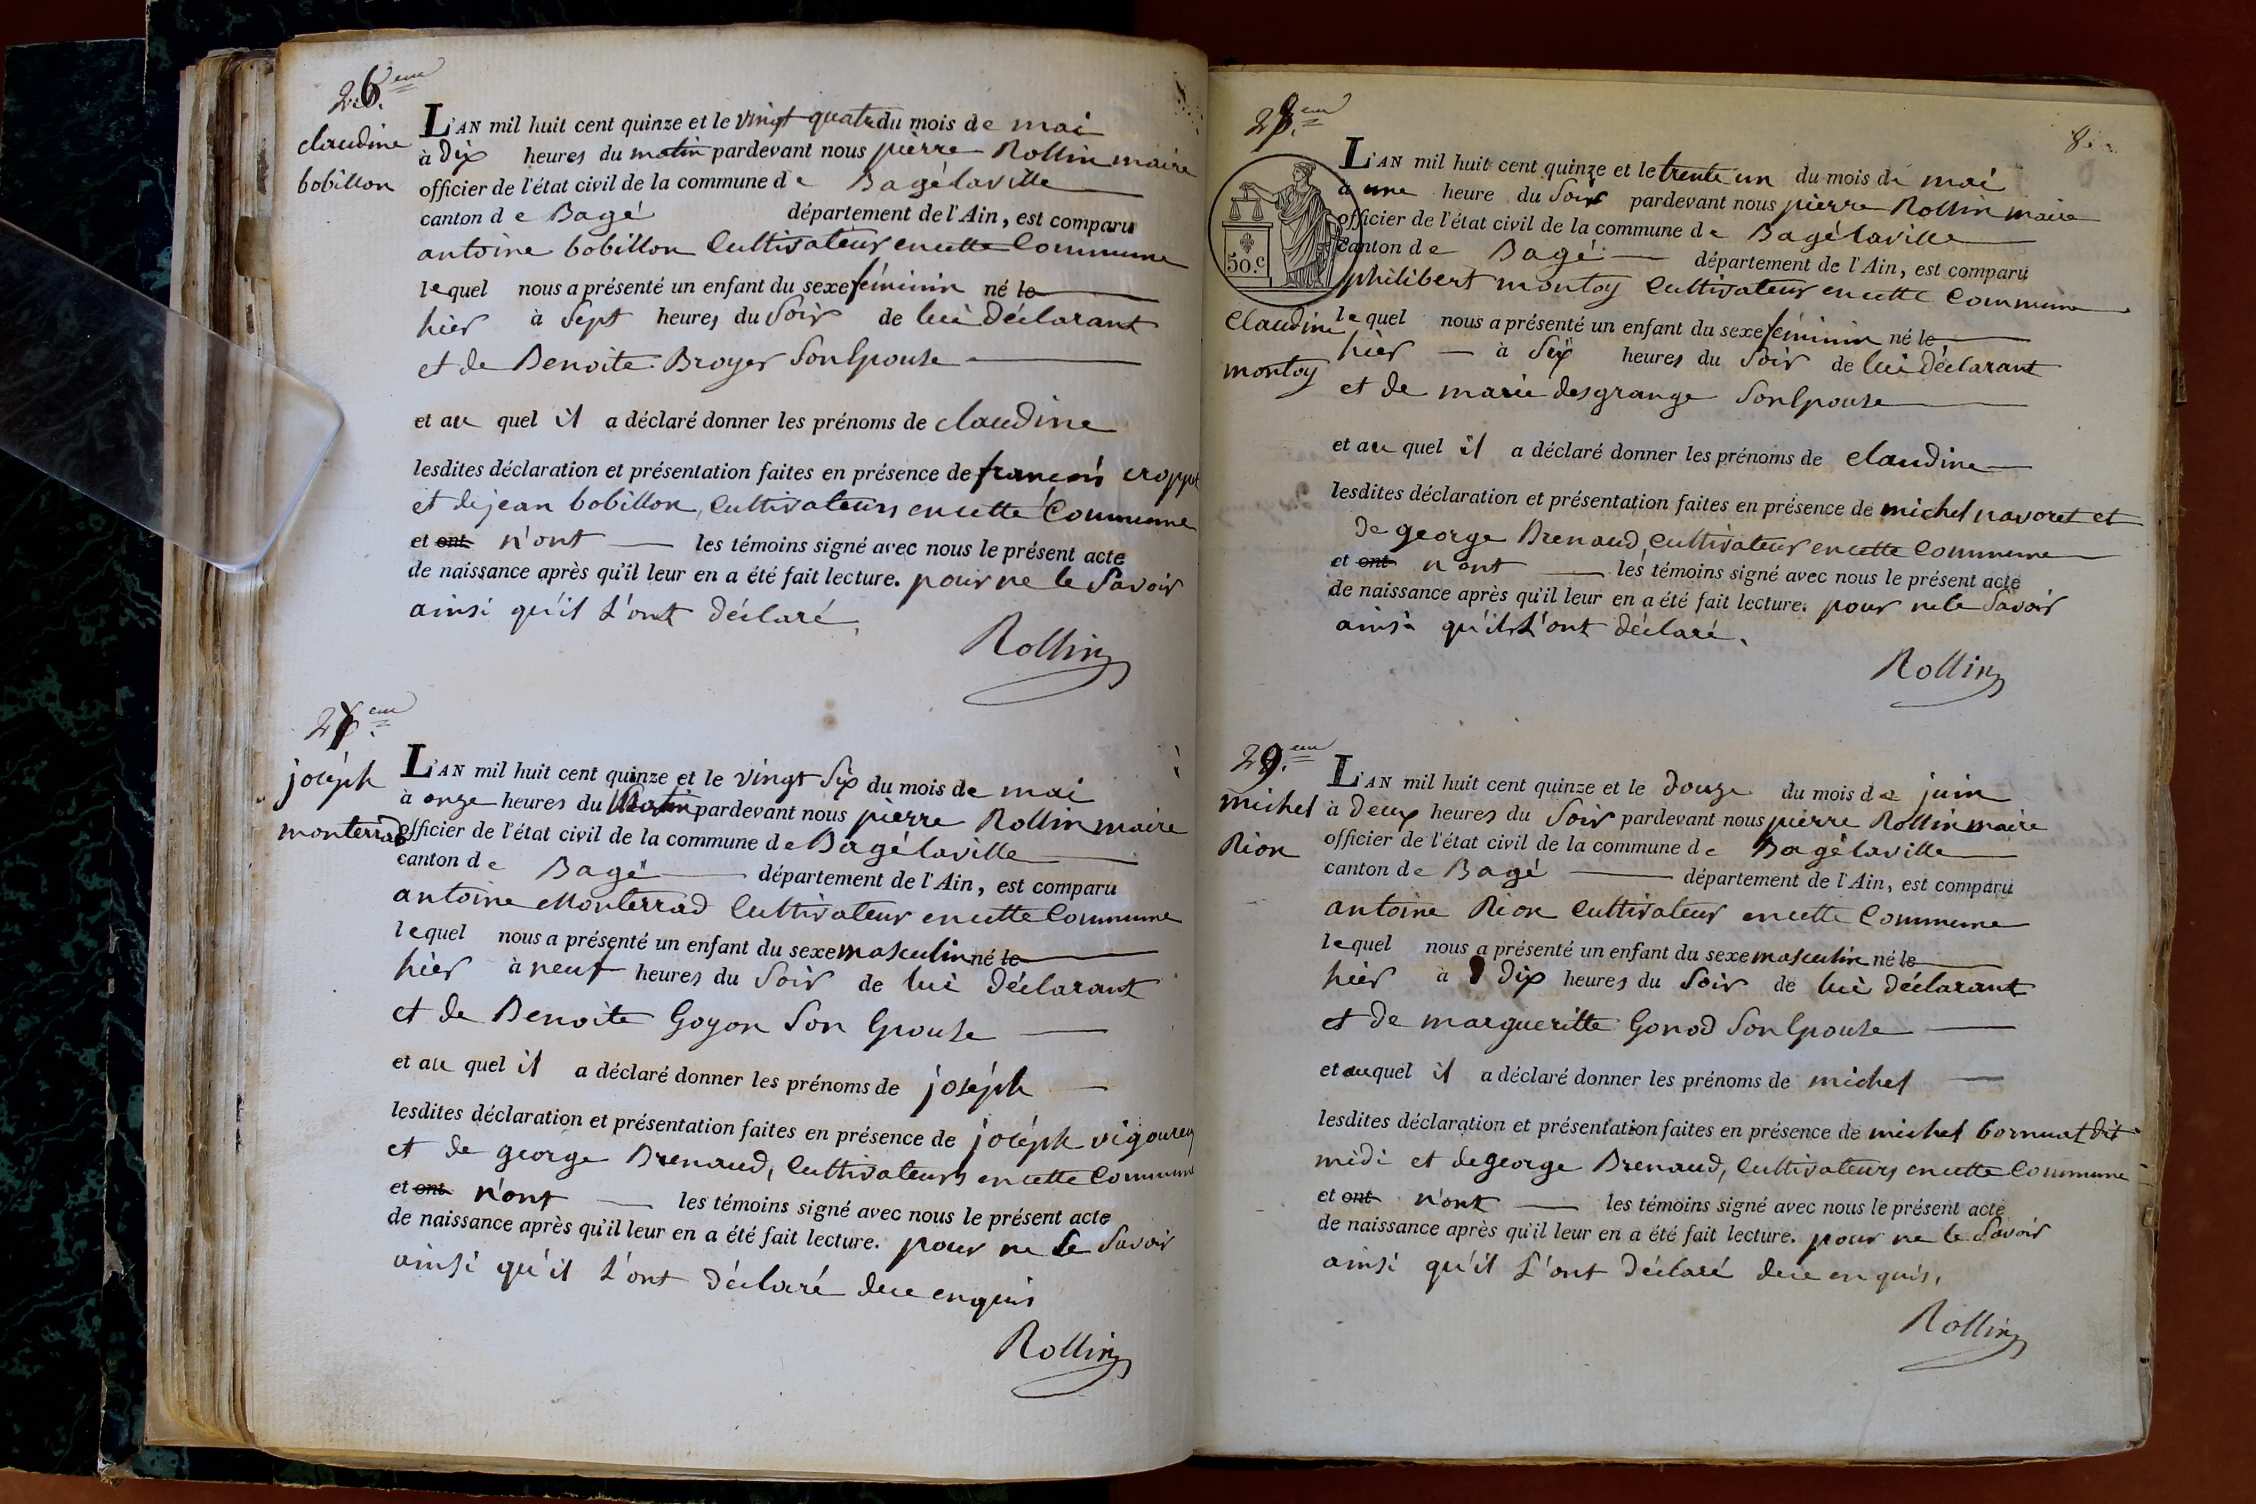 26.eme
claudine
bobillon
L'AN mil huit cent quinze et le vingt quatre du mois de mai
à Dix heures du matin pardevant nous pierre Rollin maire
officier de l'état civil de la commune de Bagélaville
canton de Bagé département de l'Ain, est comparu
antoine bobillon Cultivateur en cette Commune
lequel nous a présenté un enfant du sexe féminin né le
hier à Sept heures du Soir de lui Déclarant
et de Benoite Broyer Son Epouse
et au quel il a déclaré donner les prénoms de claudine
lesdites déclaration et présentation faites en présence de francois
et de jean bobillon, Cultivateurs en cette Commune
et ont n'ont les témoins signé avec nous le présent acte
de naissance après qu'il leur en a été fait lecture. pour ne le Savoir
ainsi qu'il L'ont Déclaré,
Rollin
27.eme
joséph
monterrad
L'AN mil huit cent quinze et le vingt Six du mois de mai
à onze heures du Matin pardevant nous pierre Rollin maire
officier de l'état civil de la commune de Bagélaville
canton de Bagé département de l'Ain, est comparu
antoine Monterrad Cultivateur en cette Commune
lequel nous a présenté un enfant du sexe masculin né le
hier à neuf heures du Soir de lui Déclarant
et de Benoite Goyon Son Epouse
et au quel il a déclaré donner les prénoms de joséph
lesdites déclaration et présentation faites en présence de joséph
et de george Brenaud, Cultivateurs en cette Commune
et ont n'ont les témoins signé avec nous le présent acte
de naissance après qu'il leur en a été fait lecture. pour ne le Savoir
ainsi qu'il L'ont Déclaré de ce enquis
Rollin
28.eme
50.c
Claudine
montoy
L'AN mil huit cent quinze et le trente un du mois de mai
à une heure du Soir pardevant nous pierre Rollin maire
officier de l'état civil de la commune de Bagélaville
canton de Bagé département de l'Ain, est comparu
philibert montoy Cultivateur en cette Commune
lequel nous a présenté un enfant du sexe féminin né le
hier à Six heures du Soir de lui Déclarant
et de marie desgrange Son Epouse
et au quel il a déclaré donner les prénoms de claudine
lesdites déclaration et présentation faites en présence de michel navoret et
de george Brenaud, Cultivateur en cette Commune
et ont n'ont les témoins signé avec nous le présent acte
de naissance après qu'il leur en a été fait lecture. pour ne le Savoir
ainsi qu'ils L'ont déclaré.
Rollin
29.eme
michel
Rion
L'AN mil huit cent quinze et le Douze du mois de juin
à Deux heures du Soir pardevant nous pierre Rollin maire
officier de l'état civil de la commune de Bagélaville
canton de Bagé département de l'Ain, est comparu
antoine Rion Cultivateur en cette Commune
lequel nous a présenté un enfant du sexe masculin né le
hier à Dix heures du Soir de lui déclarant
et de margueritte Gonod Son Epouse
et auquel il a déclaré donner les prénoms de michel
lesdites déclaration et présentation faites en présence de michel bornuat dit
midi et de george Brenaud, Cultivateurs en cette Commune
et ont n'ont les témoins signé avec nous le présent acte
de naissance après qu'il leur en a été fait lecture. pour ne le Savoir
ainsi qu'il L'ont Déclaré de ce enquis,
Rollin